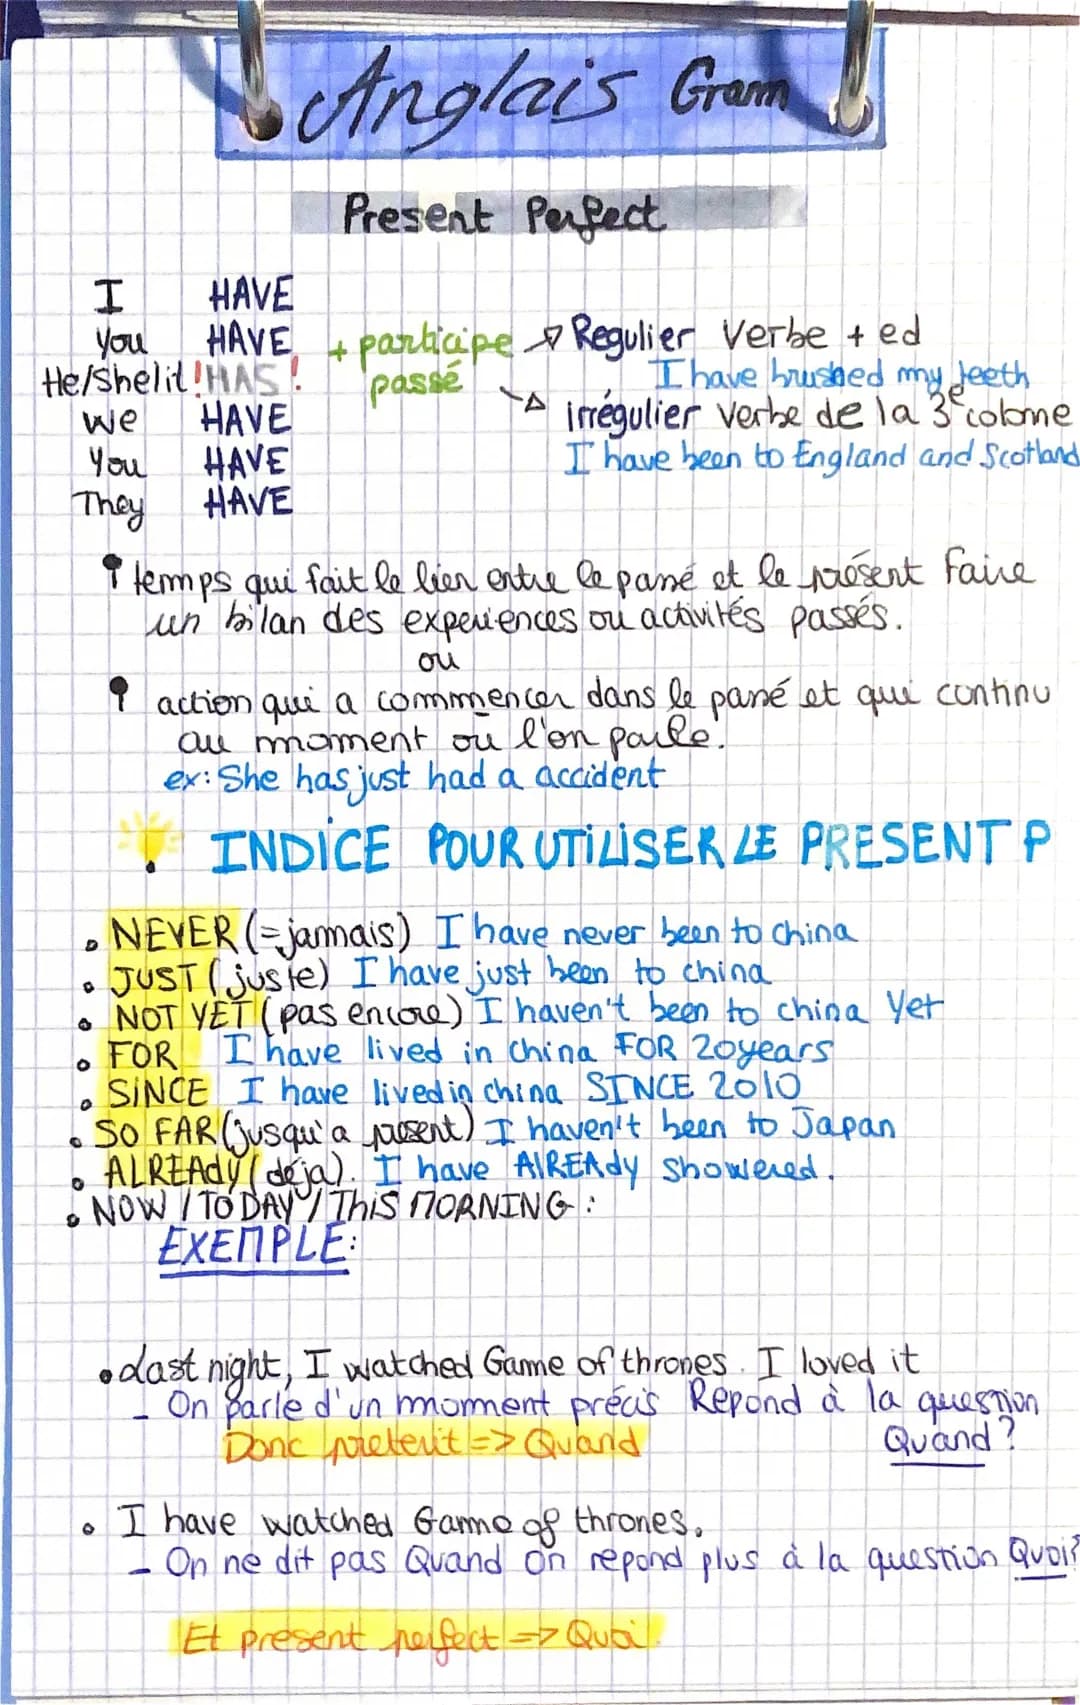 Anglais Gram
Present Perfect
I HAVE
You HAVE + participe passé → Regulier Verbe + ed
He/she/it ! HAS ! I have brushed my teeth
We HAVE → irrégulier verbe de la 3e colome
You HAVE I have been to England and Scotland
They HAVE
temps qui fait le lien entre le passé et le présent Faire
un bilan des experiences ou activités passés.
ou
action qui a commencer dans le passé et qui continu
au moment où l'on parle.
ex: She has just had a accident
INDICE POUR UTILISER LE PRESENT P
• NEVER (=jamais) I have never been to china
• JUST (juste) I have just been to china
• NOT YET (pas encore) I haven't been to china Yet
• FOR I have lived in china FOR 20years
• SINCE I have lived in china SINCE 2010
• SO FAR (jusqu'a présent) I haven't been to Japan
• ALREADY (déja). I have AlREADy showered.
• NOW / TODAY / THIS MORNING :
EXEMPLE:
• Last night, I watched Game of thrones. I loved it
- On parle d'un moment précis Répond à la question
Donc preterit => Quand Quand ?
• I have watched Game of thrones.
- On ne dit pas Quand on répond plus à la question Quoi?
Et présent perfect => Quoi